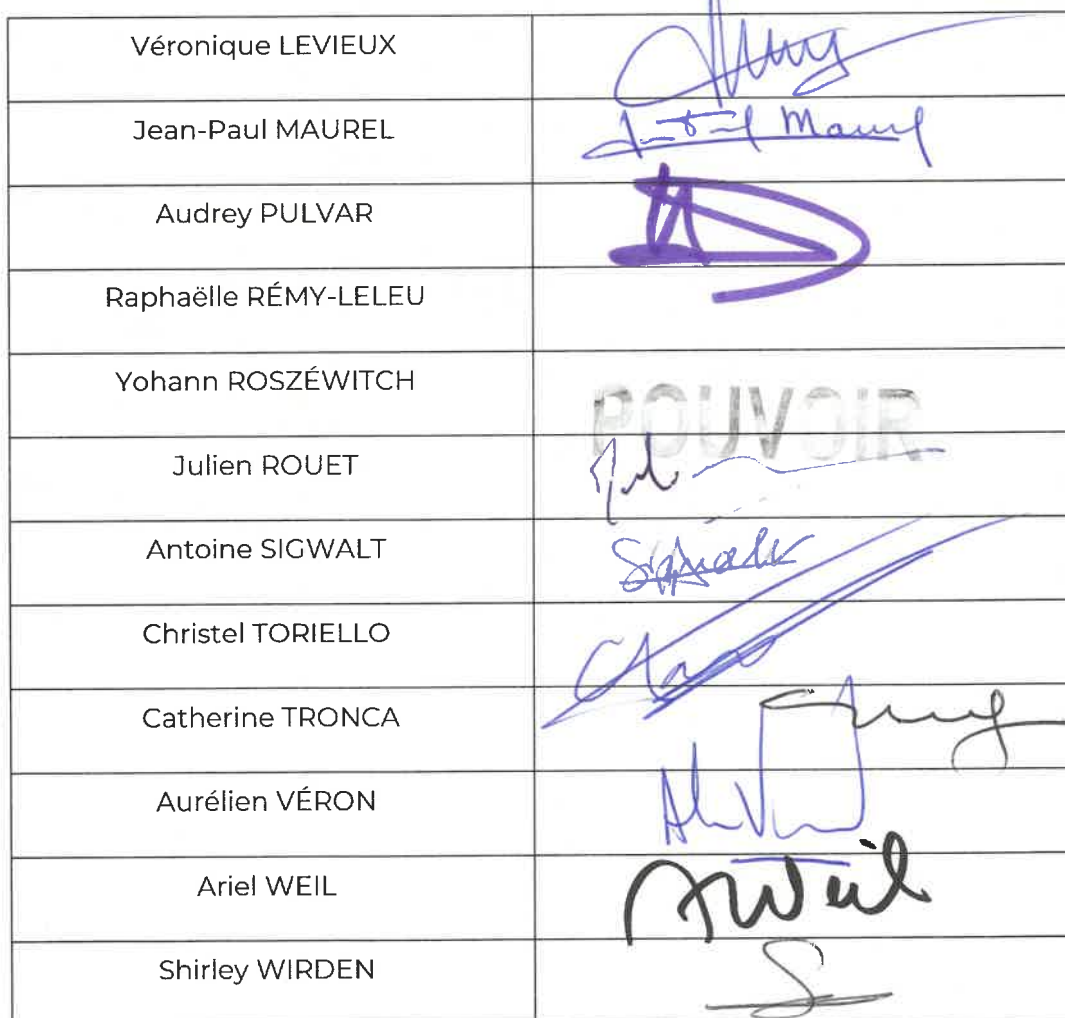 Véronique LEVIEUX
Jean-Paul MAUREL
Maurel
Audrey PULVAR
Raphaëlle RÉMY-LELEU
Yohann ROSZÉWITCH
POUVOIR
Julien ROUET
Antoine SIGWALT
Sigwalt
Christel TORIELLO
Catherine TRONCA
Aurélien VÉRON
Ariel WEIL
AWeil
Shirley WIRDEN